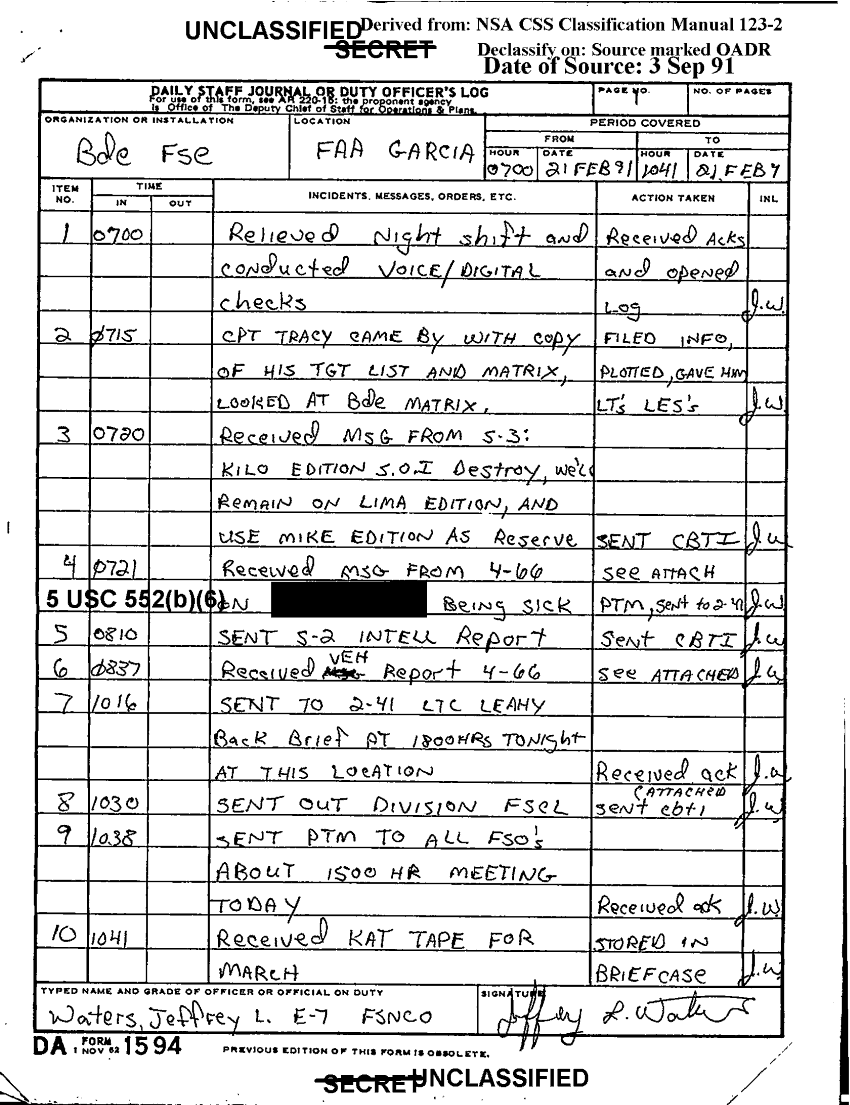 UNCLASSIFIED Derived from: NSA CSS Classification Manual 123-2
SECRET Declassify on: Source marked OADR
Date of Source: 3 Sep 91
DAILY STAFF JOURNAL OR DUTY OFFICER'S LOG
For use of this form, see AR 220-15: the proponent agency
is Office of The Deputy Chief of Staff for Operations & Plans.
PAGE NO. 1 NO. OF PAGES
ORGANIZATION OR INSTALLATION LOCATION PERIOD COVERED
FROM TO
Bde Fse FAA GARCIA HOUR DATE HOUR DATE
0700 21 FEB 91 1041 21 FEB 9
ITEM NO. TIME IN OUT INCIDENTS, MESSAGES, ORDERS, ETC. ACTION TAKEN INL
1 0700 Relieved Night shift and Received Acks
conducted VOICE/DIGITAL and opened
checks LOG J.W.
2 0715 CPT TRACY CAME BY WITH COPY FILED INFO,
OF HIS TGT LIST AND MATRIX, PLOTTED, GAVE HIM
LOOKED AT Bde MATRIX. LT's LES's J.W
3 0720 Received MSG FROM S-3:
KILO EDITION S.O.I Destroy, we'll
REMAIN ON LIMA EDITION, AND
USE MIKE EDITION AS Reserve SENT CBTI J.W
4 0721 Received MSG FROM 4-66 see ATTACH
5 USC 552(b)(6) ON BEING SICK PTM, sent to 2-41 J.W
5 0810 SENT S-2 INTELL Report Sent CBTI J.W
6 0837 Received VEH Report 4-66 see ATTACHED J.W
7 1016 SENT TO 2-41 LTC LEAHY
Back Brief AT 1800HRS TONIGHT
AT THIS LOCATION Received ack J.W
8 1030 SENT OUT DIVISION FSCL (ATTACHED sent cbti J.W
9 1038 SENT PTM TO ALL FSO's
ABOUT 1500 HR MEETING
TODAY Received ack J.W
10 1041 Received KAT TAPE FOR STORED IN
MARCH BRIEFCASE J.W
TYPED NAME AND GRADE OF OFFICER OR OFFICIAL ON DUTY SIGNATURE
Waters, Jeffrey L. E-7 FSNCO Jeffrey L. Waters
DA FORM 1 NOV 62 1594 PREVIOUS EDITION OF THIS FORM IS OBSOLETE.
SECRET UNCLASSIFIED